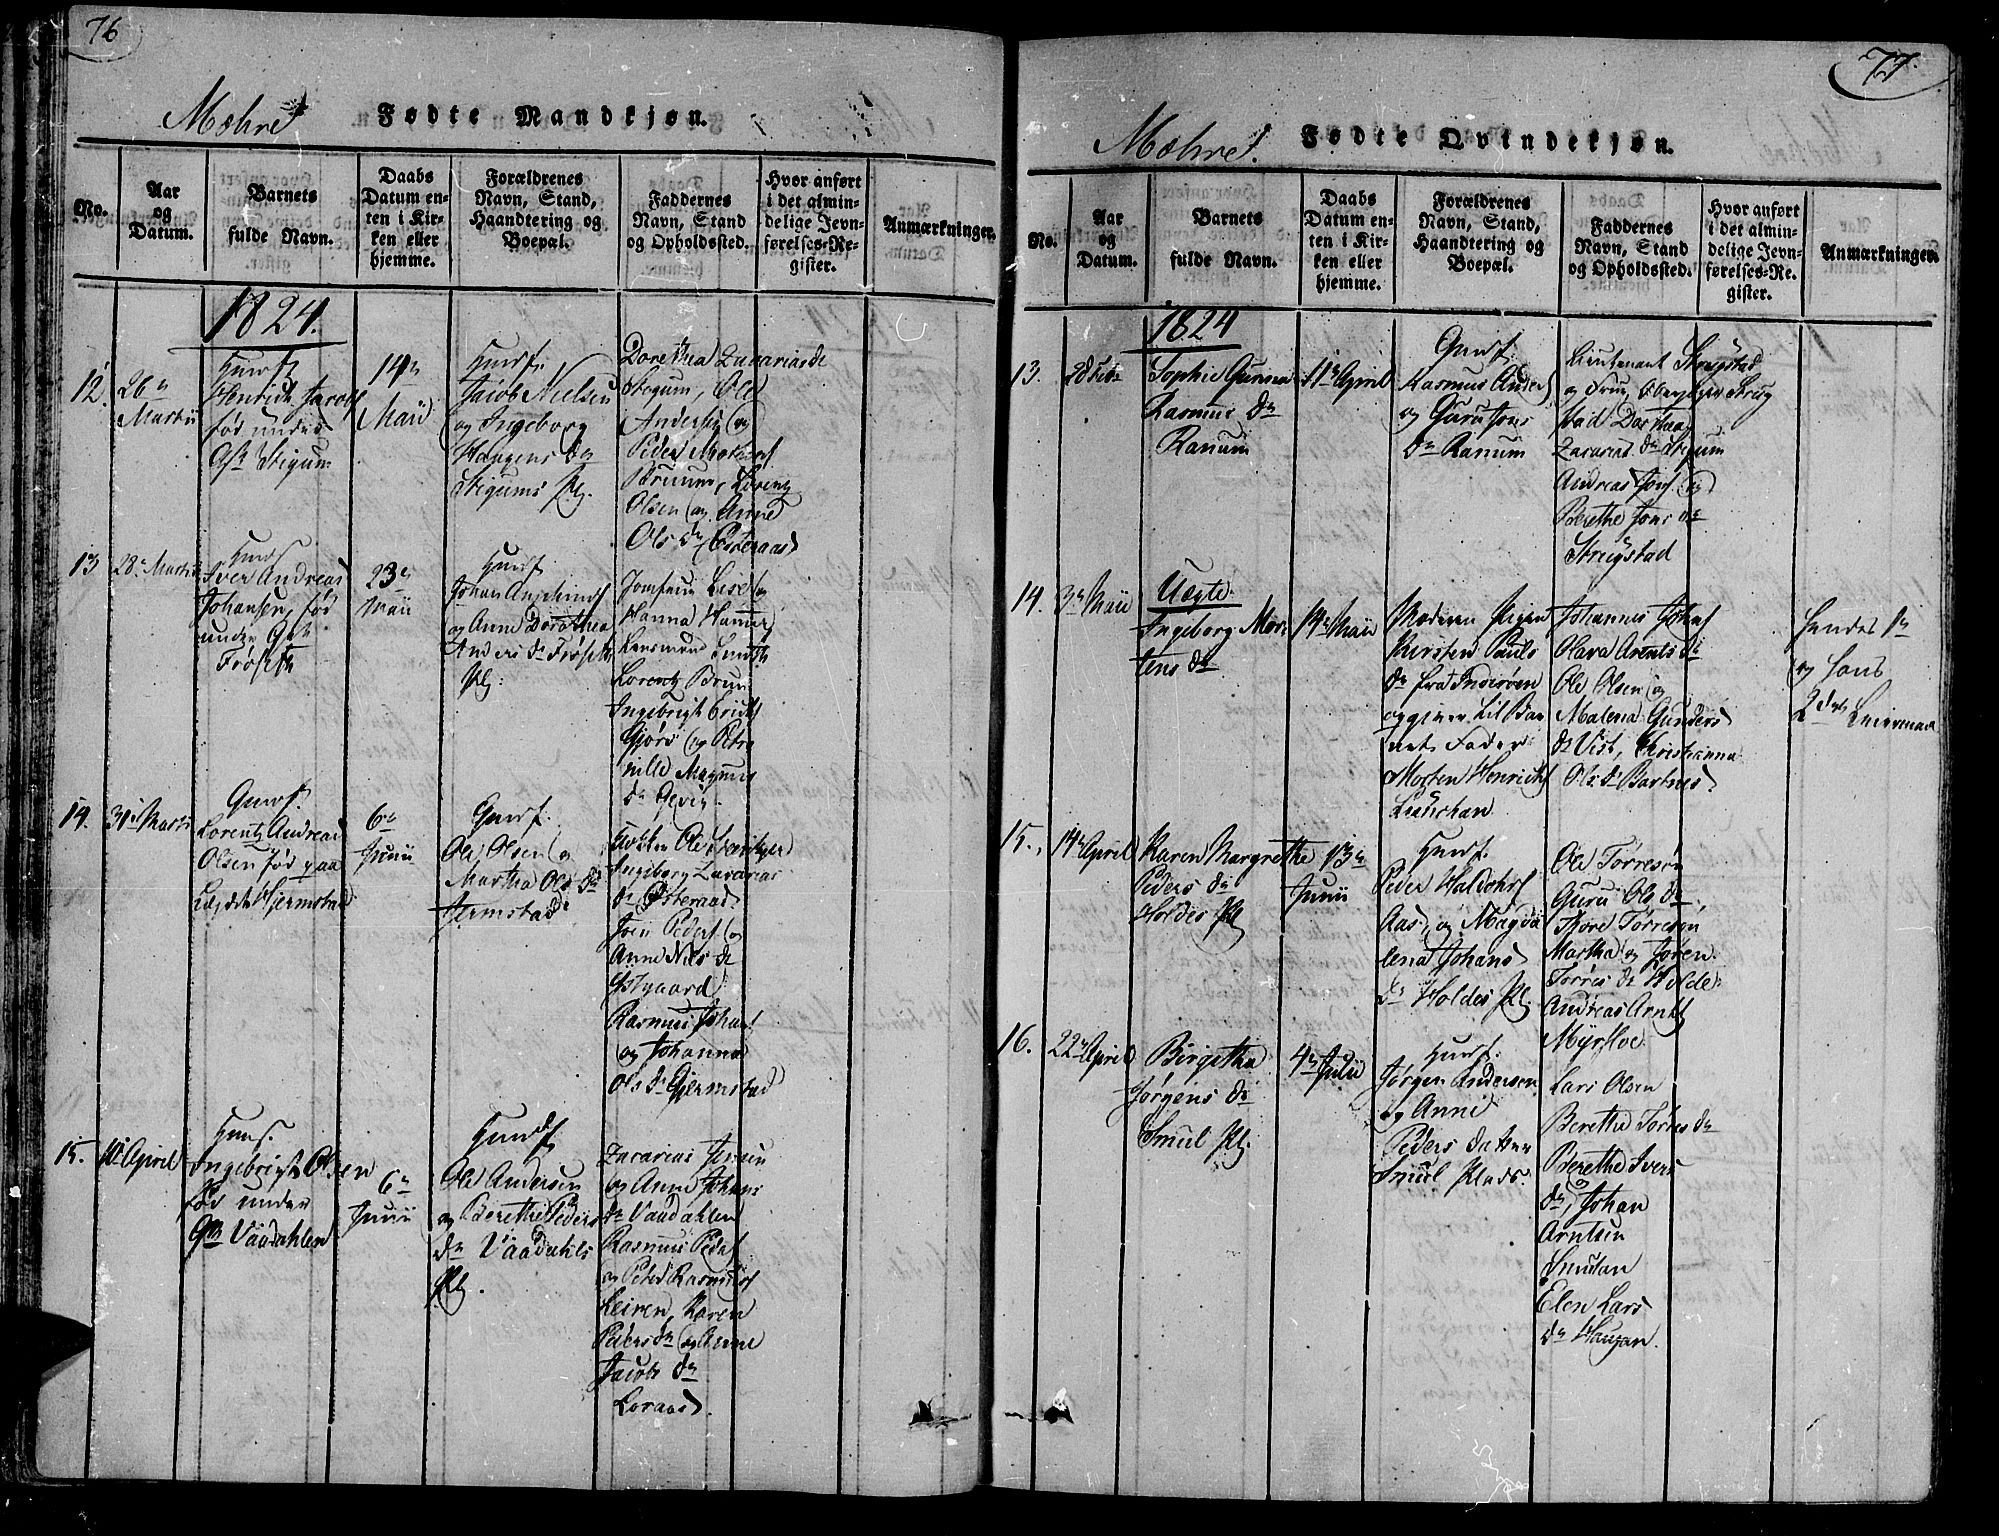 76
Mæhre
Fødte Mandkjøn.
No.
Aar
og
Datum.
Barnets
fulde Navn.
Daabs
Datum en-
ten i Kir-
ken eller
hjemme.
Forældrenes
Navn, Stand,
Haandtering og
Boepæl.
Faddernes
Navn, Stand
og Opholdssted.
Hvor anført
i det almin-
delige Jevn-
førelses-Re-
gister.
Anmærkninger.
1824.
12.
26de
Martii
Henrich Jacobs
fød under
Stigum
14de
Maii
Jacob Nielsen
og Ingeborg
Haagens dr
Stigums Pl.
Dorethea Zacariasdr
Stigum, Ole
Andersen og
Peder
Bruum, Lorentz
Olsen og Anne
Ols dr Østeraas
13
28de Martii
Iver Andreas
Johansen, fød
under
Frøseth
23de
Maii
Johan
og Anne Dorothea
Anders dr Frøseth
Pl:
Jomfrue Lise og
Hanna Hamer
Lensmand
Lorentz Brun
Ingebrigt Erichs
Gjørv og Petro
nille Magnus
dr Gevig
14.
31te Martii
Lorentz Andreas
Olsen fød paa
Hjermstad
6te
Junii
Ole Olsen og
Martha Ols dr
Hjermstad
Ole
Ingeborg Zacarias
dr Østeraas
Joen Peders og
Anne Niels dr
Østgaard
Rasmus Johans
og Johanna
Ols dr Gjermstad
15.
10de April
Ingebrigt Olsen
fød under
Vaadahlen
6te
Junii
Ole Andersen
og Berethe Peders
dr Vaadahls
Pl.
Zacarias Jensen
og Anne Johans
dr Vaadahlen
Rasmus Peders
og Peder Rasmus
Leiren, Karen
Peders dr og Anne
Jacobs dr
Loraas.
77.
Mæhre.
Fødte Qvindekjøn.
No.
Aar
og
Datum.
Barnets
fulde Navn.
Daabs
Datum en-
ten i Kir-
ken eller
hjemme.
Forældrenes
Navn, Stand,
Haandtering og
Boepæl.
Faddernes
Navn, Stand
og Opholdssted.
Hvor anført
i det almin-
delige Jevn-
førelses-Re-
gister.
Anmærkninger.
1824
13.
Sophie Gurina
Rasmus dr
Ranum
11te April
Rasmus Anders
og Guru Jons
dr Ranum
Lieutenant Strugstad
og Frue,
stad Dorthea
Zacarias dr Stigum
Andreas Jons og
Berethe Jons dr
Strugstad
14.
3de Maii
Uægte
Ingeborg Mor-
tens dr
14de Maii
Moderen Pigen
Kirsten Pauls
dr fra Inderøen
opgiver til Bar
nets Fader
Morten Henrichs
Johannes Johans
Olava Arents dr
Ole Olsen og
Malena Gunders
dr Vist, Christianna
Ols dr Bartnes
Hendes 1te
og hans
2det Leiermaal
15.
14de April
Karen Margrethe
Peders dr
Holdes Pl
13de
Junii
Peder
Aas og Magda
lena Johans
dr Holdes Pl
Ole Torresen
Guru Ols dr,
Thore Torresen
Martha og Jøren
Torres dr Holde
Andreas Arnts
16.
22de April
Birgetha
Jørgens dr
Smul Pl.
4de Julii
Jørgen Andersen
og Anne
Peders dr
Smul Plads.
Lars Olsen
Berethe Torres dr
Berethe Ivers
dr, Johan
Arntsen
Smulan
Elen Lars
dr Haugan.